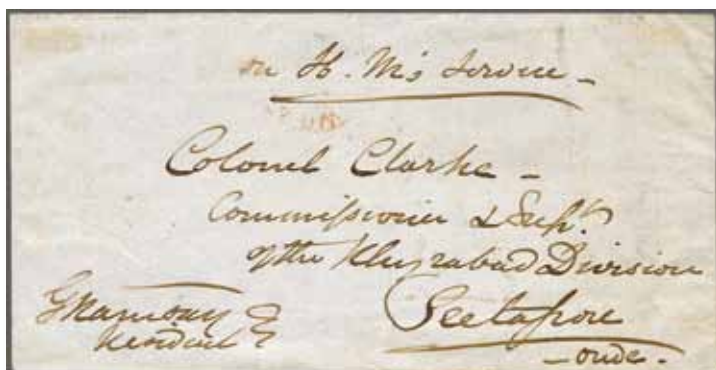 on H. M's Service -
Colonel Clarke -
Commissioner & Supt.
of the Khyrabad Division
Seetapore
- oude -
G Ramsay
Resident